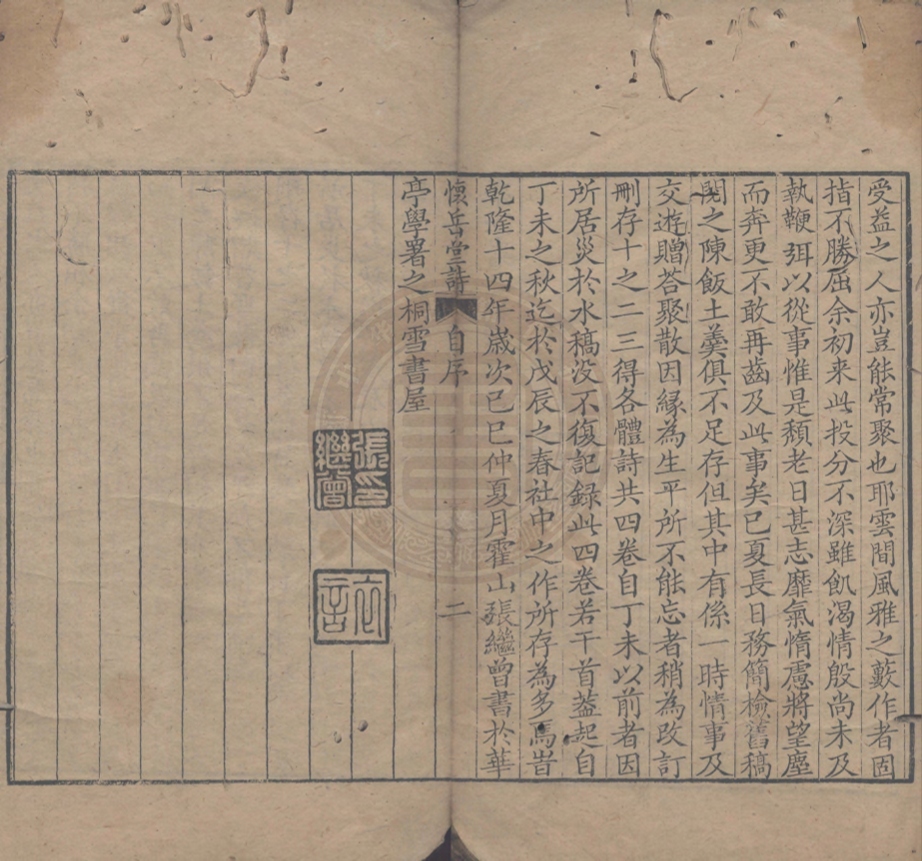 受益之人亦豈能常聚也耶雲間風雅之藪作者固
指不勝屈余初来此投分不深雖飢渴情殷尚未及
執鞭弭以從事惟是頹老日甚志靡氣惰慮將望塵
而奔更不敢再齒及此事矣巳夏長日務簡檢舊稿
閱之陳飯土羹俱不足存但其中有係一時情事及
交遊贈荅聚散因緣為生平所不能忘者稍為改訂
刪存十之二三得各體詩共四卷自丁未以前者因
所居災於水稿没不復記録此四卷若干首葢起自
丁未之秋迄於戊辰之春社中之作所存為多焉旹
乾隆十四年歲次己巳仲夏月霍山張繼曾書於華
懷岳堂詩 自序 二
亭學署之桐雪書屋
張印繼曾